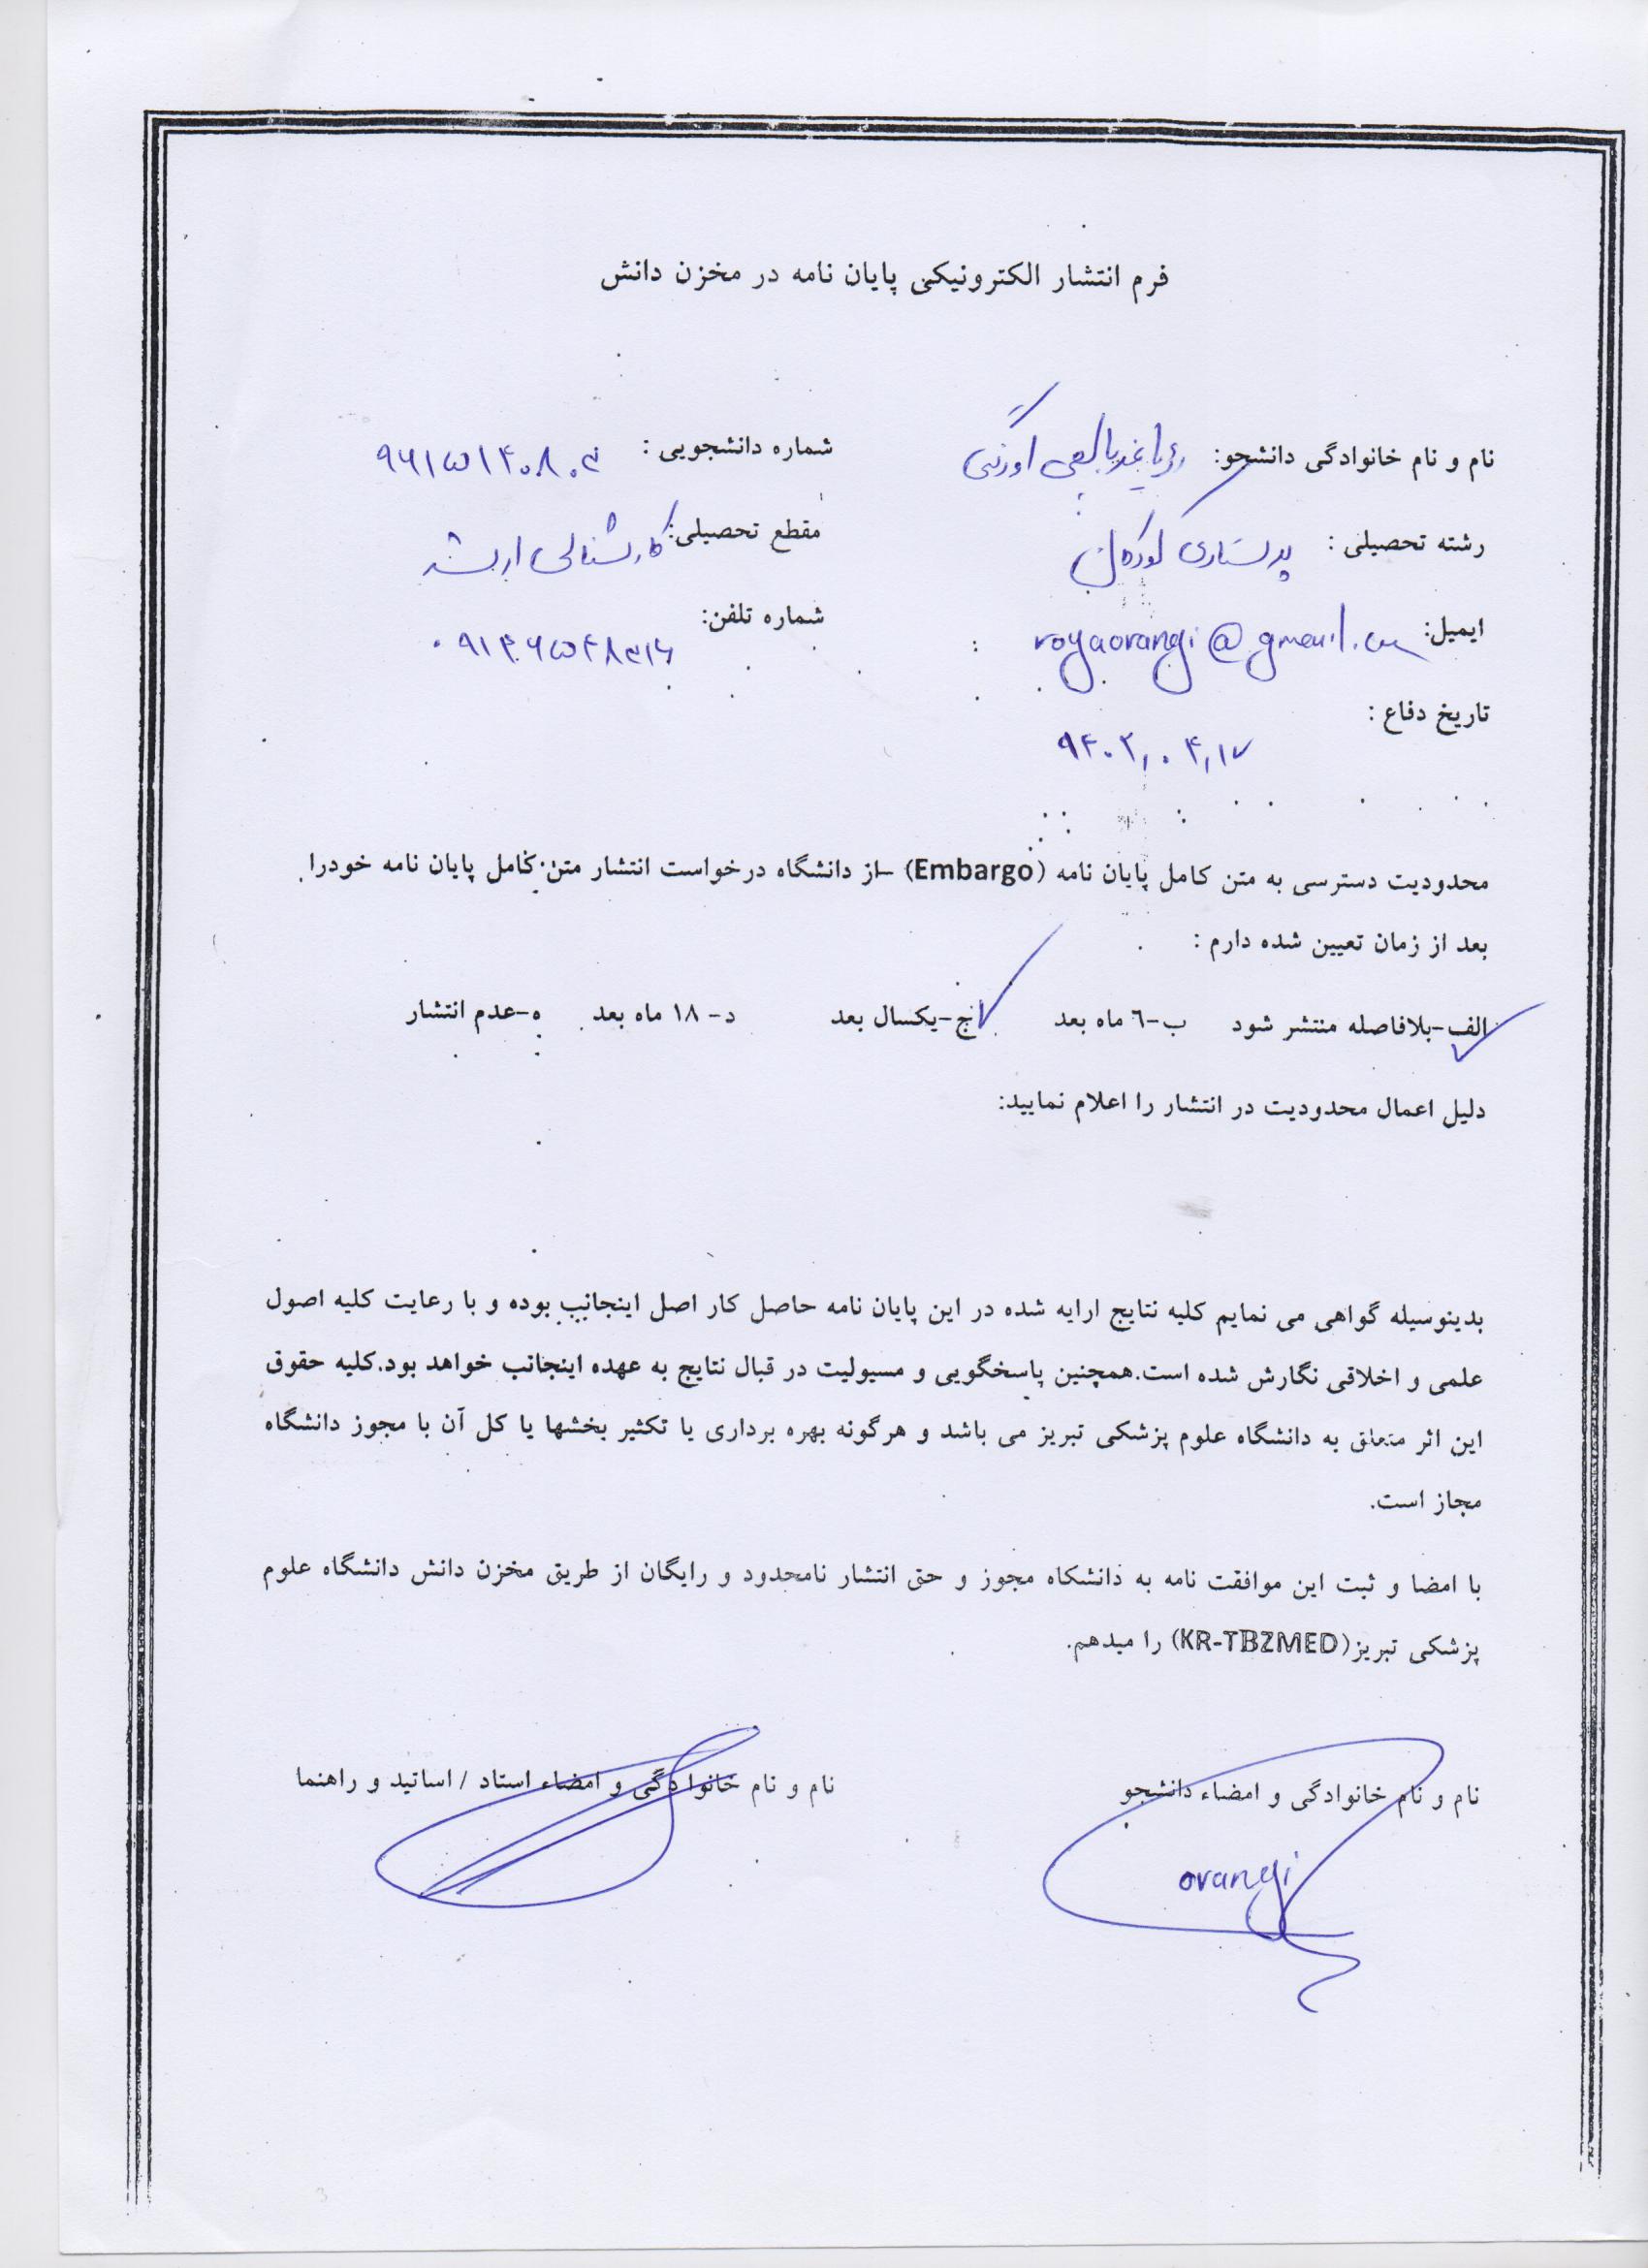 فرم انتشار الکترونیکی پایان نامه در مخزن دانش
نام و نام خانوادگی دانشجو: رویا اورنگی
شماره دانشجویی :
رشته تحصیلی : پرستاری کودکان
مقطع تحصیلی: کارشناسی ارشد
ایمیل: royaorangi@gmail.com
شماره تلفن:
تاریخ دفاع :
محدودیت دسترسی به متن کامل پایان نامه (Embargo) –از دانشگاه درخواست انتشار متن کامل پایان نامه خودرا
بعد از زمان تعیین شده دارم :
الف-بلافاصله منتشر شود ب-٦ ماه بعد ج-یکسال بعد د- ۱۸ ماه بعد ه-عدم انتشار
دلیل اعمال محدودیت در انتشار را اعلام نمایید:
بدینوسیله گواهی می نمایم کلیه نتایج ارایه شده در این پایان نامه حاصل کار اصل اینجانب بوده و با رعایت کلیه اصول
علمی و اخلاقی نگارش شده است.همچنین پاسخگویی و مسیولیت در قبال نتایج به عهده اینجانب خواهد بود.کلیه حقوق
این اثر متعلق به دانشگاه علوم پزشکی تبریز می باشد و هرگونه بهره برداری یا تکثیر بخشها یا کل آن با مجوز دانشگاه
مجاز است.
با امضا و ثبت این موافقت نامه به دانشکاه مجوز و حق انتشار نامحدود و رایگان از طریق مخزن دانش دانشگاه علوم
پزشکی تبریز(KR-TBZMED) را میدهم.
نام و نام خانوادگی و امضاء دانشجو
نام و نام خانوادگی و امضاء استاد / اساتید و راهنما
orangi